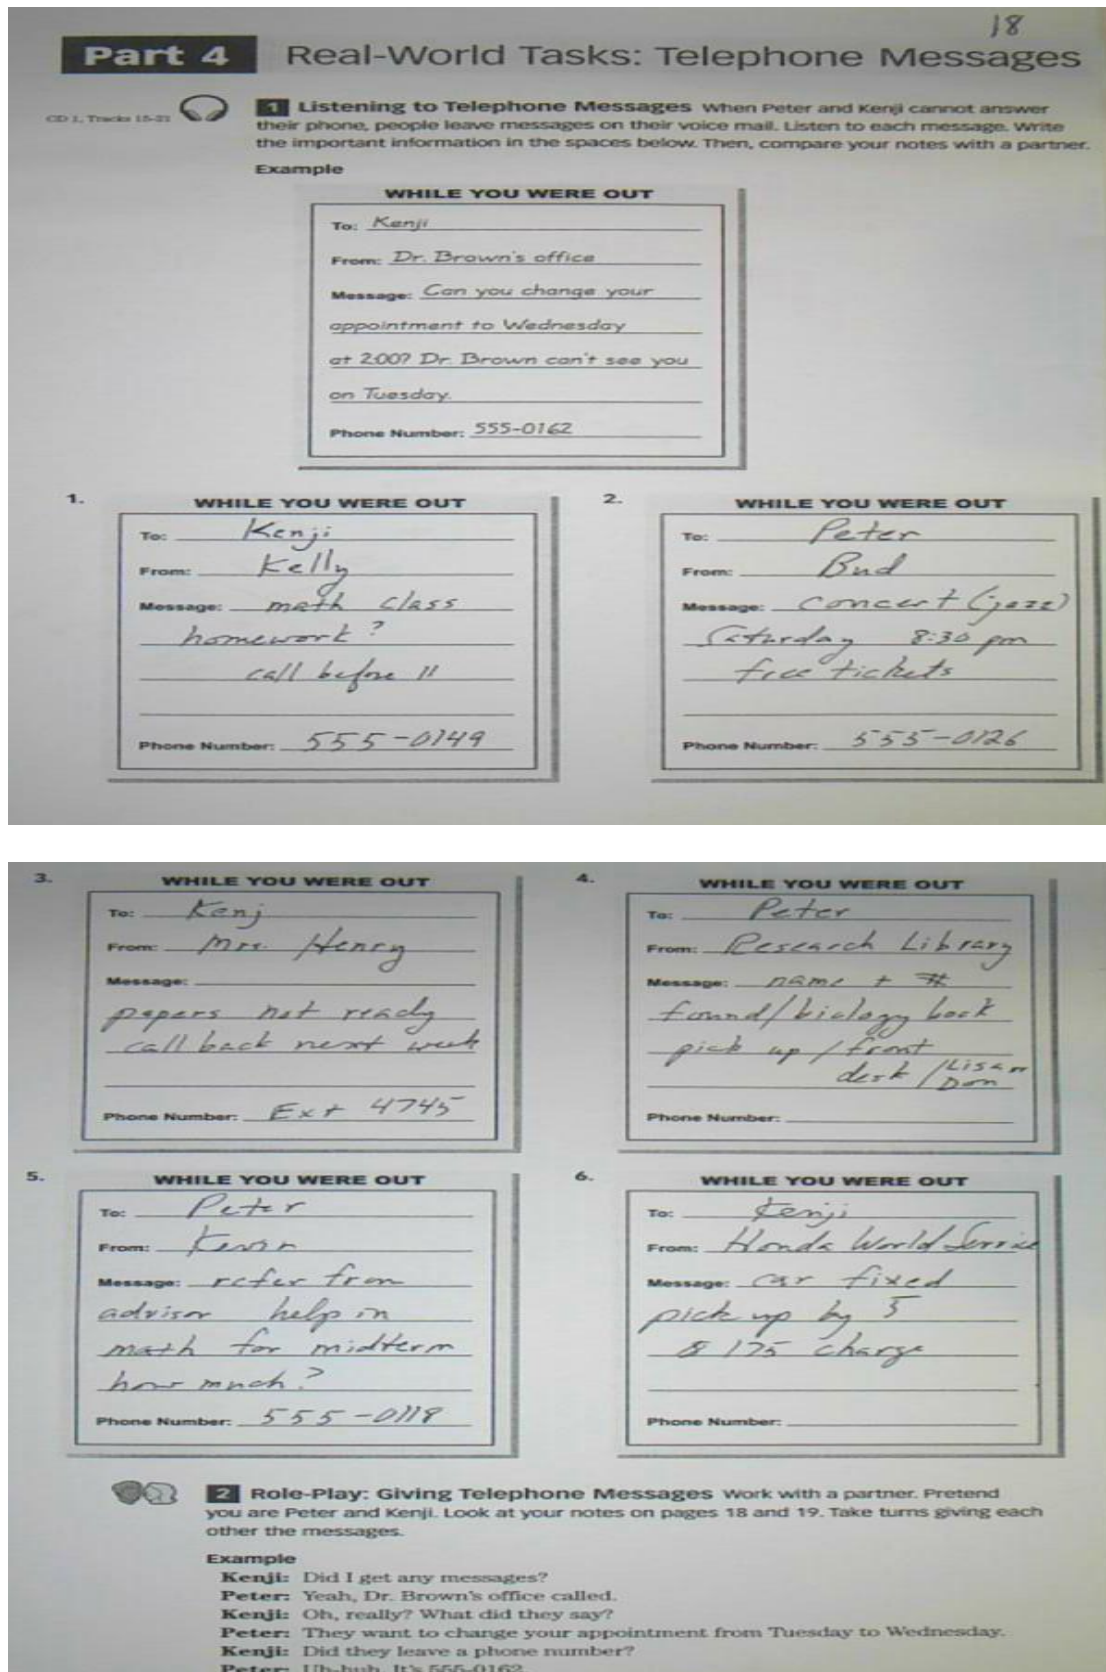 18
Part 4 Real-World Tasks: Telephone Messages
CD 1, Tracks 15-21
1 Listening to Telephone Messages When Peter and Kenji cannot answer
their phone, people leave messages on their voice mail. Listen to each message. Write
the important information in the spaces below. Then, compare your notes with a partner.
Example
WHILE YOU WERE OUT
To: Kenji
From: Dr. Brown's office
Message: Can you change your
appointment to Wednesday
at 2:00? Dr. Brown can't see you
on Tuesday.
Phone Number: 555-0162
1.
WHILE YOU WERE OUT
To: Kenji
From: Kelly
Message: math class
homework?
call before 11
Phone Number: 555-0149
2.
WHILE YOU WERE OUT
To: Peter
From: Bud
Message: concert (jazz)
Saturday 8:30 pm
free tickets
Phone Number: 555-0126
3.
WHILE YOU WERE OUT
To: Kenj
From: Mrs. Henry
Message:
papers not ready
call back next week
Phone Number: Ext 4745
4.
WHILE YOU WERE OUT
To: Peter
From: Research Library
Message: name + #
found/biology book
pick up / front
desk / Lisa or
Don
Phone Number:
5.
WHILE YOU WERE OUT
To: Peter
From: Kevin
Message: refer from
advisor help in
math for midterm
how much?
Phone Number: 555-0118
6.
WHILE YOU WERE OUT
To: Kenji
From: Honda World Service
Message: car fixed
pick up by 5
$ 175 charge
Phone Number:
2 Role-Play: Giving Telephone Messages Work with a partner. Pretend
you are Peter and Kenji. Look at your notes on pages 18 and 19. Take turns giving each
other the messages.
Example
Kenji: Did I get any messages?
Peter: Yeah, Dr. Brown's office called.
Kenji: Oh, really? What did they say?
Peter: They want to change your appointment from Tuesday to Wednesday.
Kenji: Did they leave a phone number?
Peter: Uh-huh. It's 555-0162.